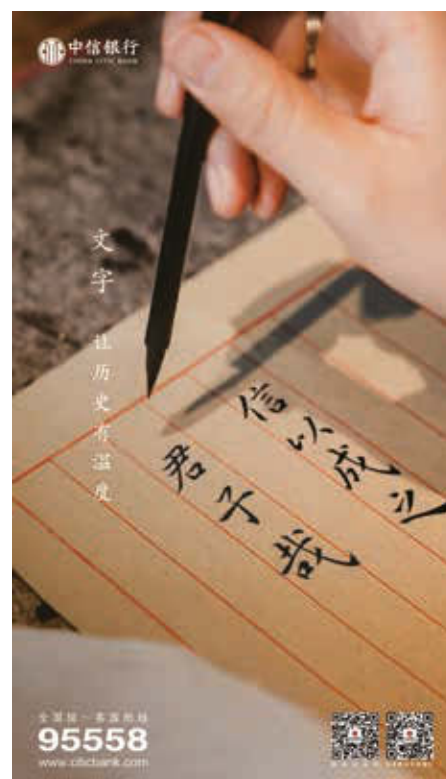 中信银行
CHINA CITIC BANK
文字
让历史有温度
信以成之
君子哉
全国统一客服热线
95558
www.citicbank.com